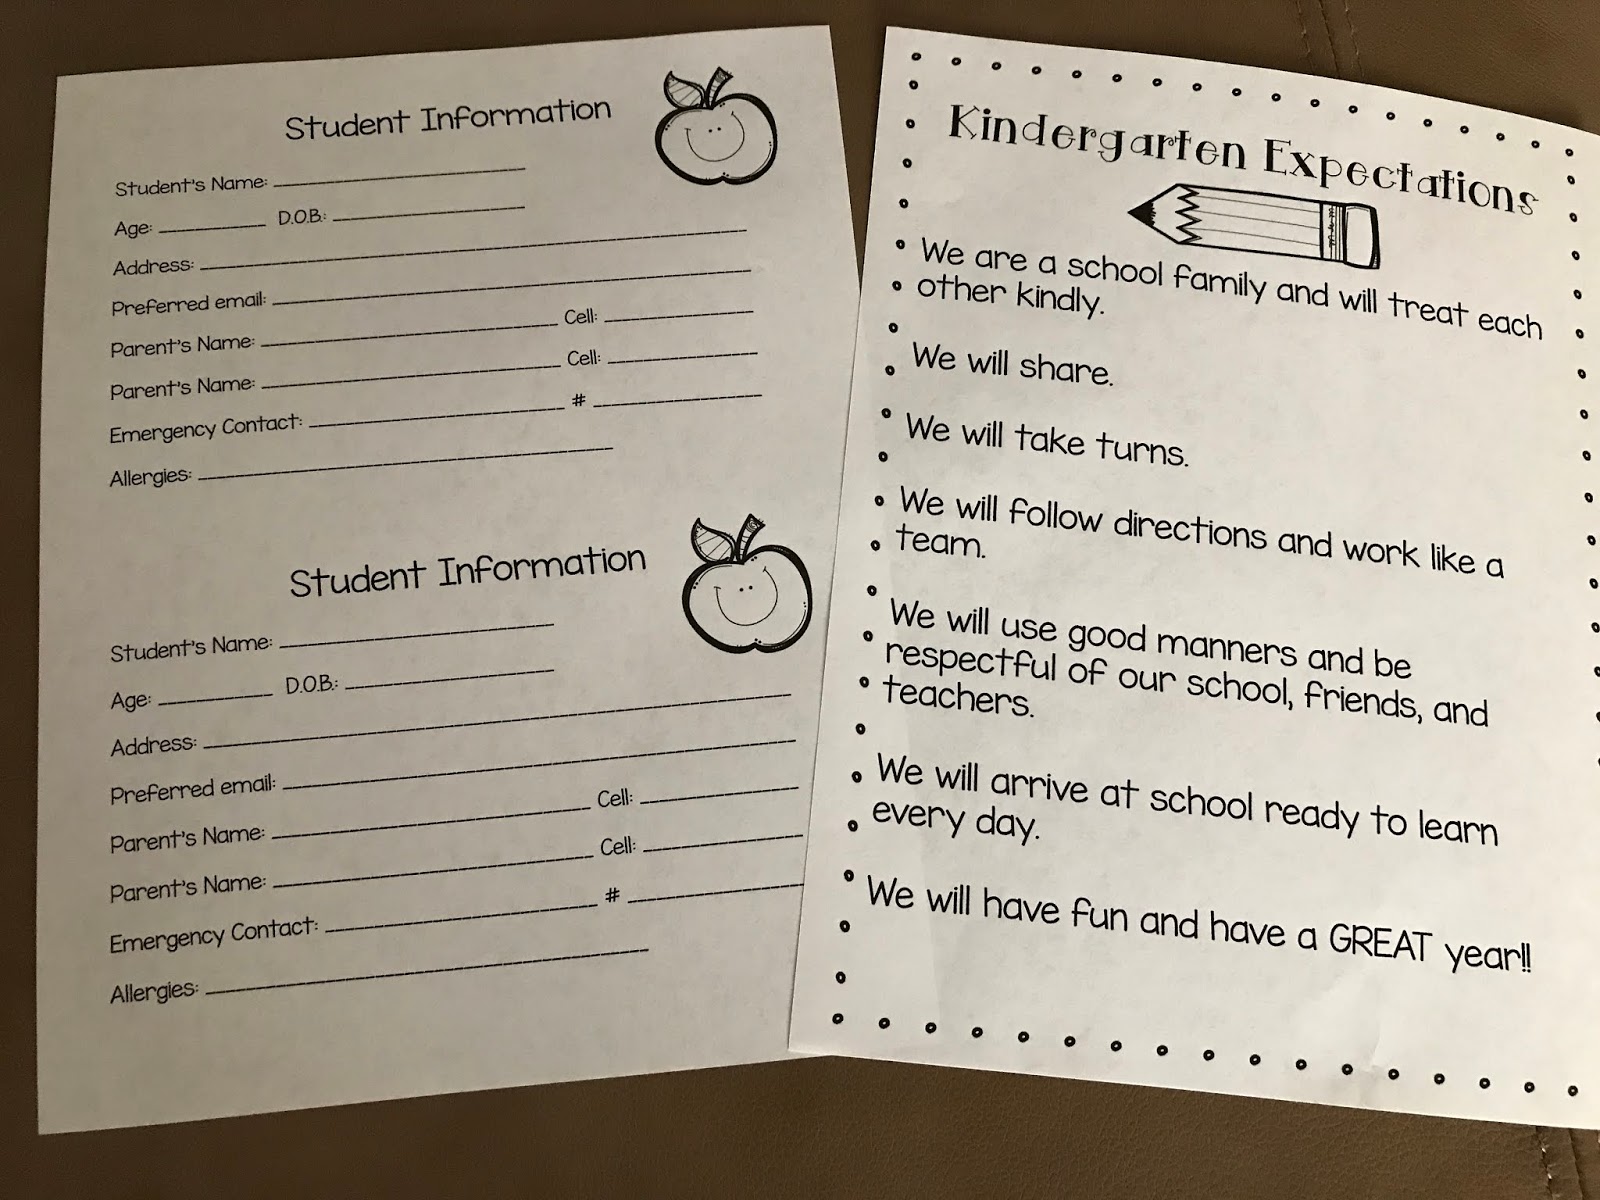 Student Information
Student's Name: ____________________
Age: __________ D.O.B.: __________________
Address: ____________________________________________
Preferred email: ______________________________________
Parent's Name: ______________________________ Cell: ______________
Parent's Name: ______________________________ Cell: ______________
Emergency Contact: __________________________ # ________________
Allergies: __________________________________
Student Information
Student's Name: ____________________
Age: __________ D.O.B.: __________________
Address: ____________________________________________
Preferred email: ______________________________________
Parent's Name: ______________________________ Cell: ______________
Parent's Name: ______________________________ Cell: ______________
Emergency Contact: __________________________ # ________________
Allergies: __________________________________
Kindergarten Expectations
We are a school family and will treat each
other kindly.
We will share.
We will take turns.
We will follow directions and work like a
team.
We will use good manners and be
respectful of our school, friends, and
teachers.
We will arrive at school ready to learn
every day.
We will have fun and have a GREAT year!!